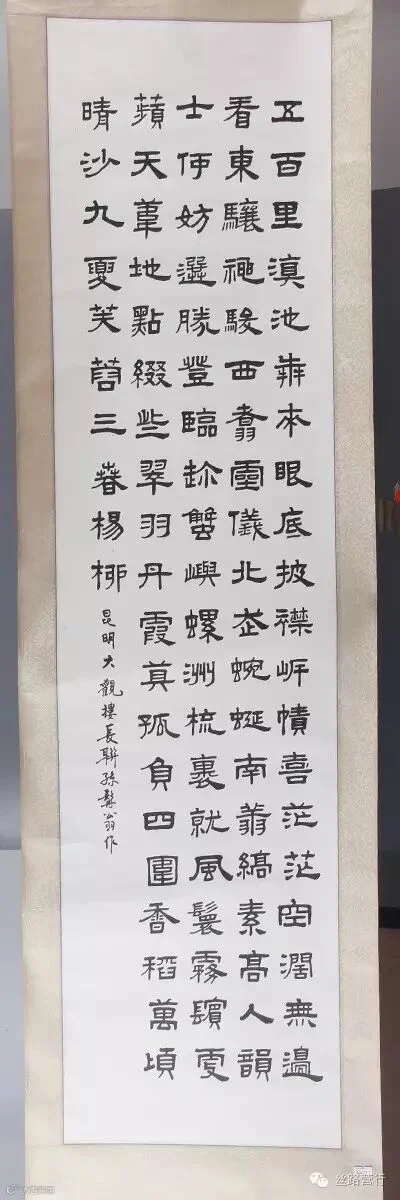 五百里滇池奔來眼底披襟岸幘喜茫茫空濶無邊
看東驤神駿西翥靈儀北走蜿蜒南翔縞素高人韻
士何妨選勝登臨趂蟹嶼螺洲梳裹就風鬟霧鬢更
蘋天葦地點綴些翠羽丹霞莫孤負四圍香稻萬頃
晴沙九夏芙蓉三春楊柳
昆明大觀樓長聯孫髯翁作
丝路营行